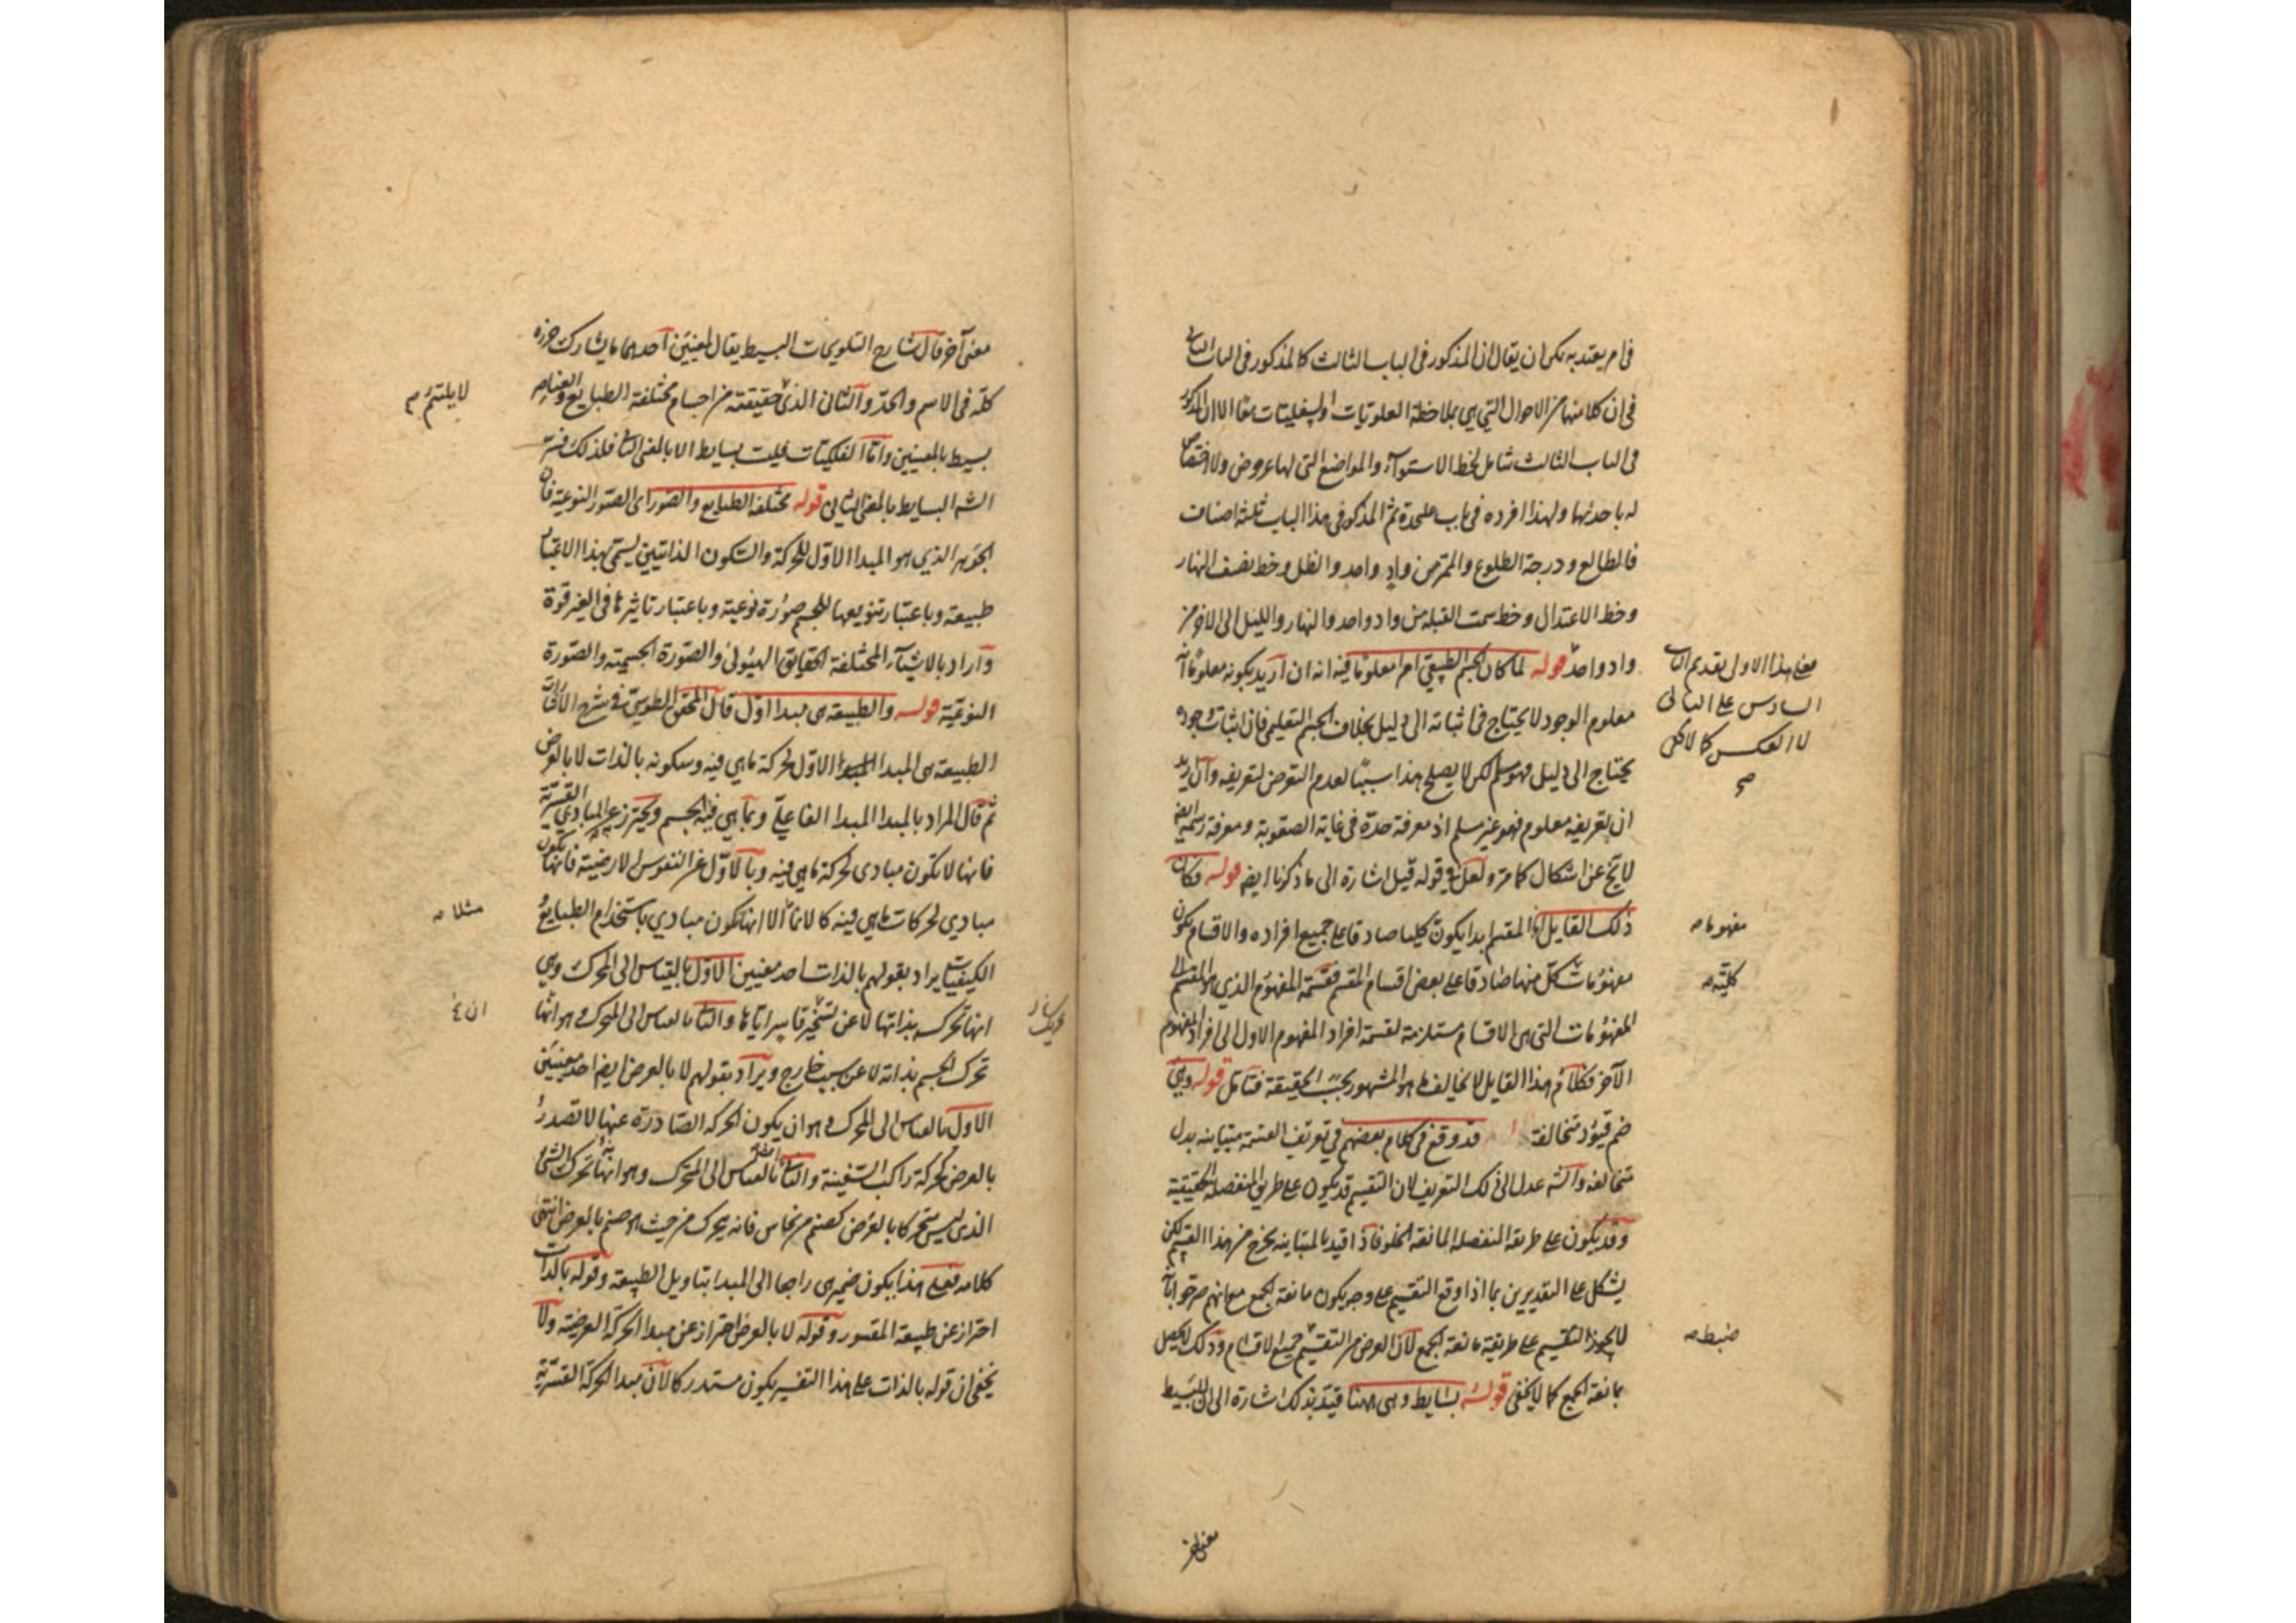 في امر يعتد به يمكن ان يقال ان المذكور في الباب الثالث كالمذكور في الباب الثاني
في ان كلا منهما من الاحوال التي هي بملاحظة العلويات والسفليات معا الا ان المذكور
في الباب الثالث شامل لخط الاستواء والمواضع التي لها عروض ولا اختصاص
له باحدها ولهذا افرده في باب علىحدة ثم المذكور في هذا الباب ثلثة اصناف
فالطالع ودرجة الطلوع والممر من واد واحد والظل وخط نصف النهار
وخط الاعتدال وخط سمت القبلة من واد واحد والنهار والليل الى الاخر من
واد واحد قوله لما كان الجسم الطبيعي امرا معلوما فيه انه ان اريد بكونه معلوما انه
معلوم الوجود لا يحتاج في اثباته الى دليل بخلاف الجسم التعليمي فان اثبات وجوده
يحتاج الى دليل فهو مسلم لكن لا يصلح هذا سببا لعدم التعرض لتعريفه وان اريد
ان تعريفه معلوم فهو غير مسلم اذ معرفة حده في غاية الصعوبة ومعرفة رسمه ايضا
لا يخ عن اشكال كما مر ولعل في قوله قيل اشارة الى ما ذكرنا ايضا قوله فكان
ذلك القايل المقسم ابدا يكون كليا صادقا على جميع افراده والاقسام يكون
مفهومات كل منها صادقا على بعض اقسام المقسم فقسمة المفهوم الذي هو المقسم الى
المفهومات التي هي الاقسام مستلزمة لقسمة افراد المفهوم الاول الى افراد المفهوم
الآخر فكلام هذا القايل لا يخالف ما هو المشهور بحسب الحقيقة فتامل قوله وهي
ضم قيود متخالفة قد وقع في كلام بعضهم في تعريف القسمة متباينة بدل
متخالفة والشه عدل الى ذلك التعريف لان التقسيم قد يكون على طريق المنفصلة الحقيقية
وقد يكون على طريقة المنفصلة المانعة الخلو فاذا قيد بالمتباينة يخرج من هذا القسم لكن
يشكل على التقديرين بما اذا وقع التقسيم على وجه يكون مانعة الجمع مع انهم صرحوا بانه
لا يجوز التقسيم على طريقة مانعة الجمع لان الغرض من التقسيم جميع الاقسام وذلك لا يحصل
بمانعة الجمع كما لا يخفى قوله بسايط وهي ههنا قيد بذلك اشارة الى ان للبسيط
معنى هذا الاول تقديم الباب
السادس على الثاني
لا العكس كما لا يخفى
صح
مفهوما صح
كلية صح
ضبط صح
معنى آخر
معنى آخر قال شارح التلويحات البسيط يقال لمعنيين احدهما ما يشارك جزؤه
كله في الاسم والحد والثاني الذي حقيقته من اجسام مختلفة الطبايع والعناصر
بسيط بالمعنيين واما الفلكيات فليست بسايط الا بالمعنى الثاني فلذلك فسر
الشه البسايط بالمعنى الثاني قوله مختلفة الطبايع والصور اي الصور النوعية فان
الجوهر الذي هو المبدا الاول للحركة والسكون الذاتيين يسمى بهذا الاعتبار
طبيعة وباعتبار تنويعها للجسم صورة نوعية وباعتبار تاثيرها في الغير قوة
واراد بالاشياء المختلفة الحقايق الهيولى والصورة الجسمية والصورة
النوعية قوله والطبيعة هي مبدا اول قال المحقق الطوسي في شرح الاشارات
الطبيعة هي المبدا الاول لحركة ما هي فيه وسكونه بالذات لا بالعرض
ثم قال المراد بالمبدا المبدا الفاعلي وبما هي فيه الجسم ويحترز عن المبادي القسرية
فانها لا تكون مبادي لحركة ما هي فيه وبالاول عن النفوس الارضية فانها تكون
مبادي لحركات ما هي فيه كالانماء الا انها تكون مبادي باستخدام الطبايع و
الكيفيات يراد بقولهم بالذات احد معنيين الاول بالقياس الى المحرك وهي
انها تحرك بذاتها لا عن تسخير قاسر اياها والثاني بالقياس الى المتحرك وهو انها
تحرك الجسم بذاته لا عن سبب خارج ويراد بقولهم لا بالعرض ايضا احد معنيين
الاول بالقياس الى المحرك وهو ان يكون الحركة الصادرة عنها لا تصدر
بالعرض كحركة راكب السفينة والثاني بالقياس الى المتحرك وهو انها تحرك الشئ
الذي ليس متحركا بالعرض كصنم من نحاس فانه يتحرك من حيث هو صنم بالعرض انتهى
كلامه فعلى هذا يكون ضمير هي راجعا الى المبدا بتاويل الطبيعة وقوله بالذات
احتراز عن طبيعة المقسور وقوله لا بالعرض احتراز عن مبدا الحركة العرضية ولا
يخفى ان قوله بالذات على هذا التفسير يكون مستدركا لان مبدا الحركة القسرية
لا يلتئم م
مثلا صح